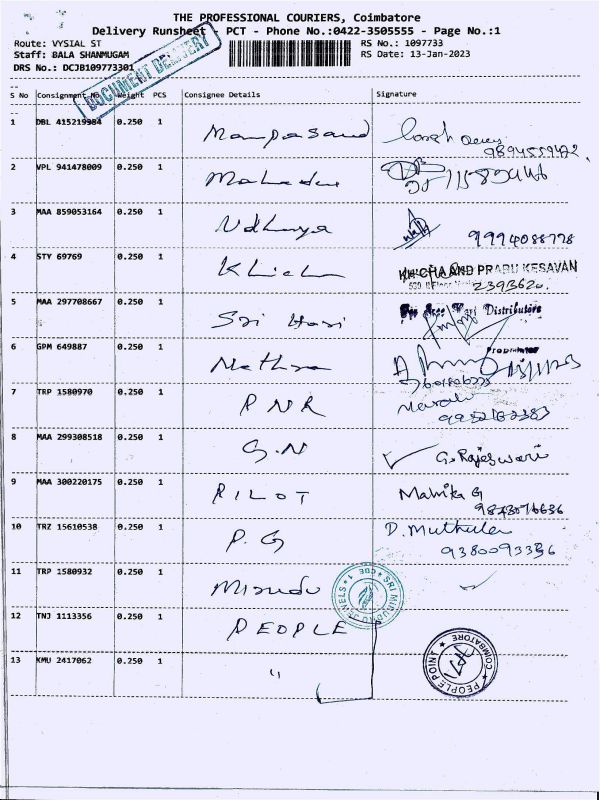 THE PROFESSIONAL COURIERS, Coimbatore
Delivery Runsheet PCT - Phone No.:0422-3505555 - Page No.:1
Route: VYSIAL ST RS No.: 1097733
Staff: BALA SHANMUGAM RS Date: 13-Jan-2023
DRS No.: DCJB109773301
DOCUMENT DELIVERY
S No Consignment No. Weight PCS Consignee Details Signature
1 DBL 415219984 0.250 1 Manpasand
2 VPL 941478009 0.250 1
3 MAA 859053164 0.250 1 Udhaya 9994088778
4 STY 69769 0.250 1 KHICHA AND PRABU KESAVAN
2393620.
5 MAA 297708667 0.250 1 Sri Hari Sri Hari Distributors
6 GPM 649887 0.250 1 Nethra Proprietor
7 TRP 1580970 0.250 1 P N R
8 MAA 299308518 0.250 1 G.N G. Rajeswari
9 MAA 300220175 0.250 1 PILOT Mallika G
10 TRZ 15610538 0.250 1 P. G D. Muthulea
9380093356
11 TRP 1580932 0.250 1 Mirudu SRI MIRUDU JEWELS * CBE *
12 TNJ 1113356 0.250 1 PEOPLE
13 KMU 2417062 0.250 1 " PEOPLE POINT * COIMBATORE *